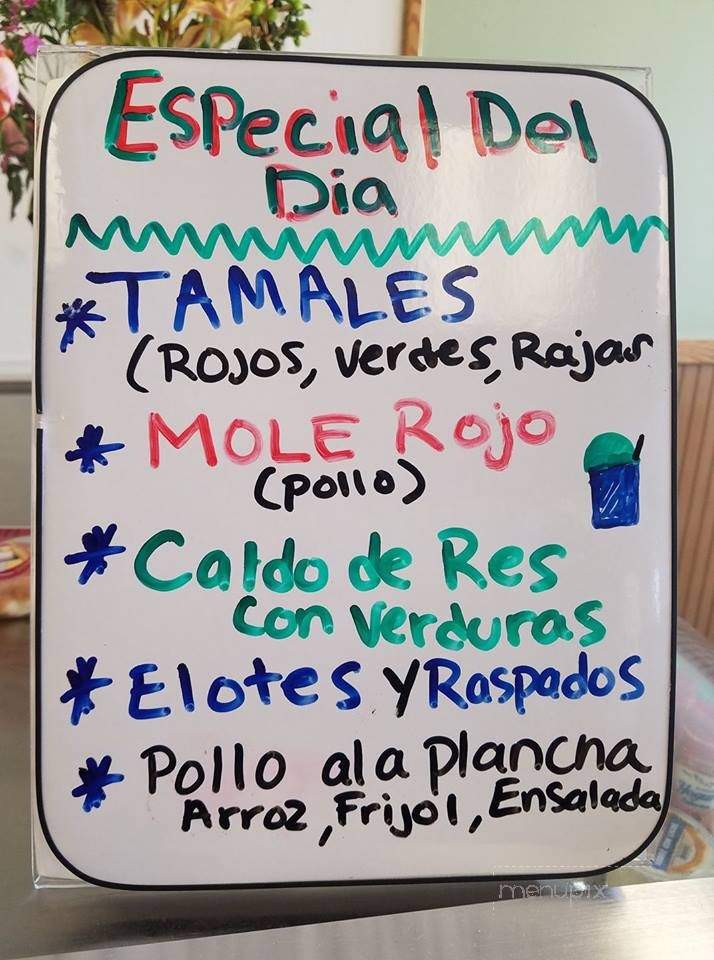 Especial Del
Dia
* TAMALES
(Rojos, Verdes, Rajas
* MOLE Rojo
(pollo)
* Caldo de Res
con Verduras
* Elotes y Raspados
* Pollo ala plancha
Arroz, Frijol, Ensalada
menupix